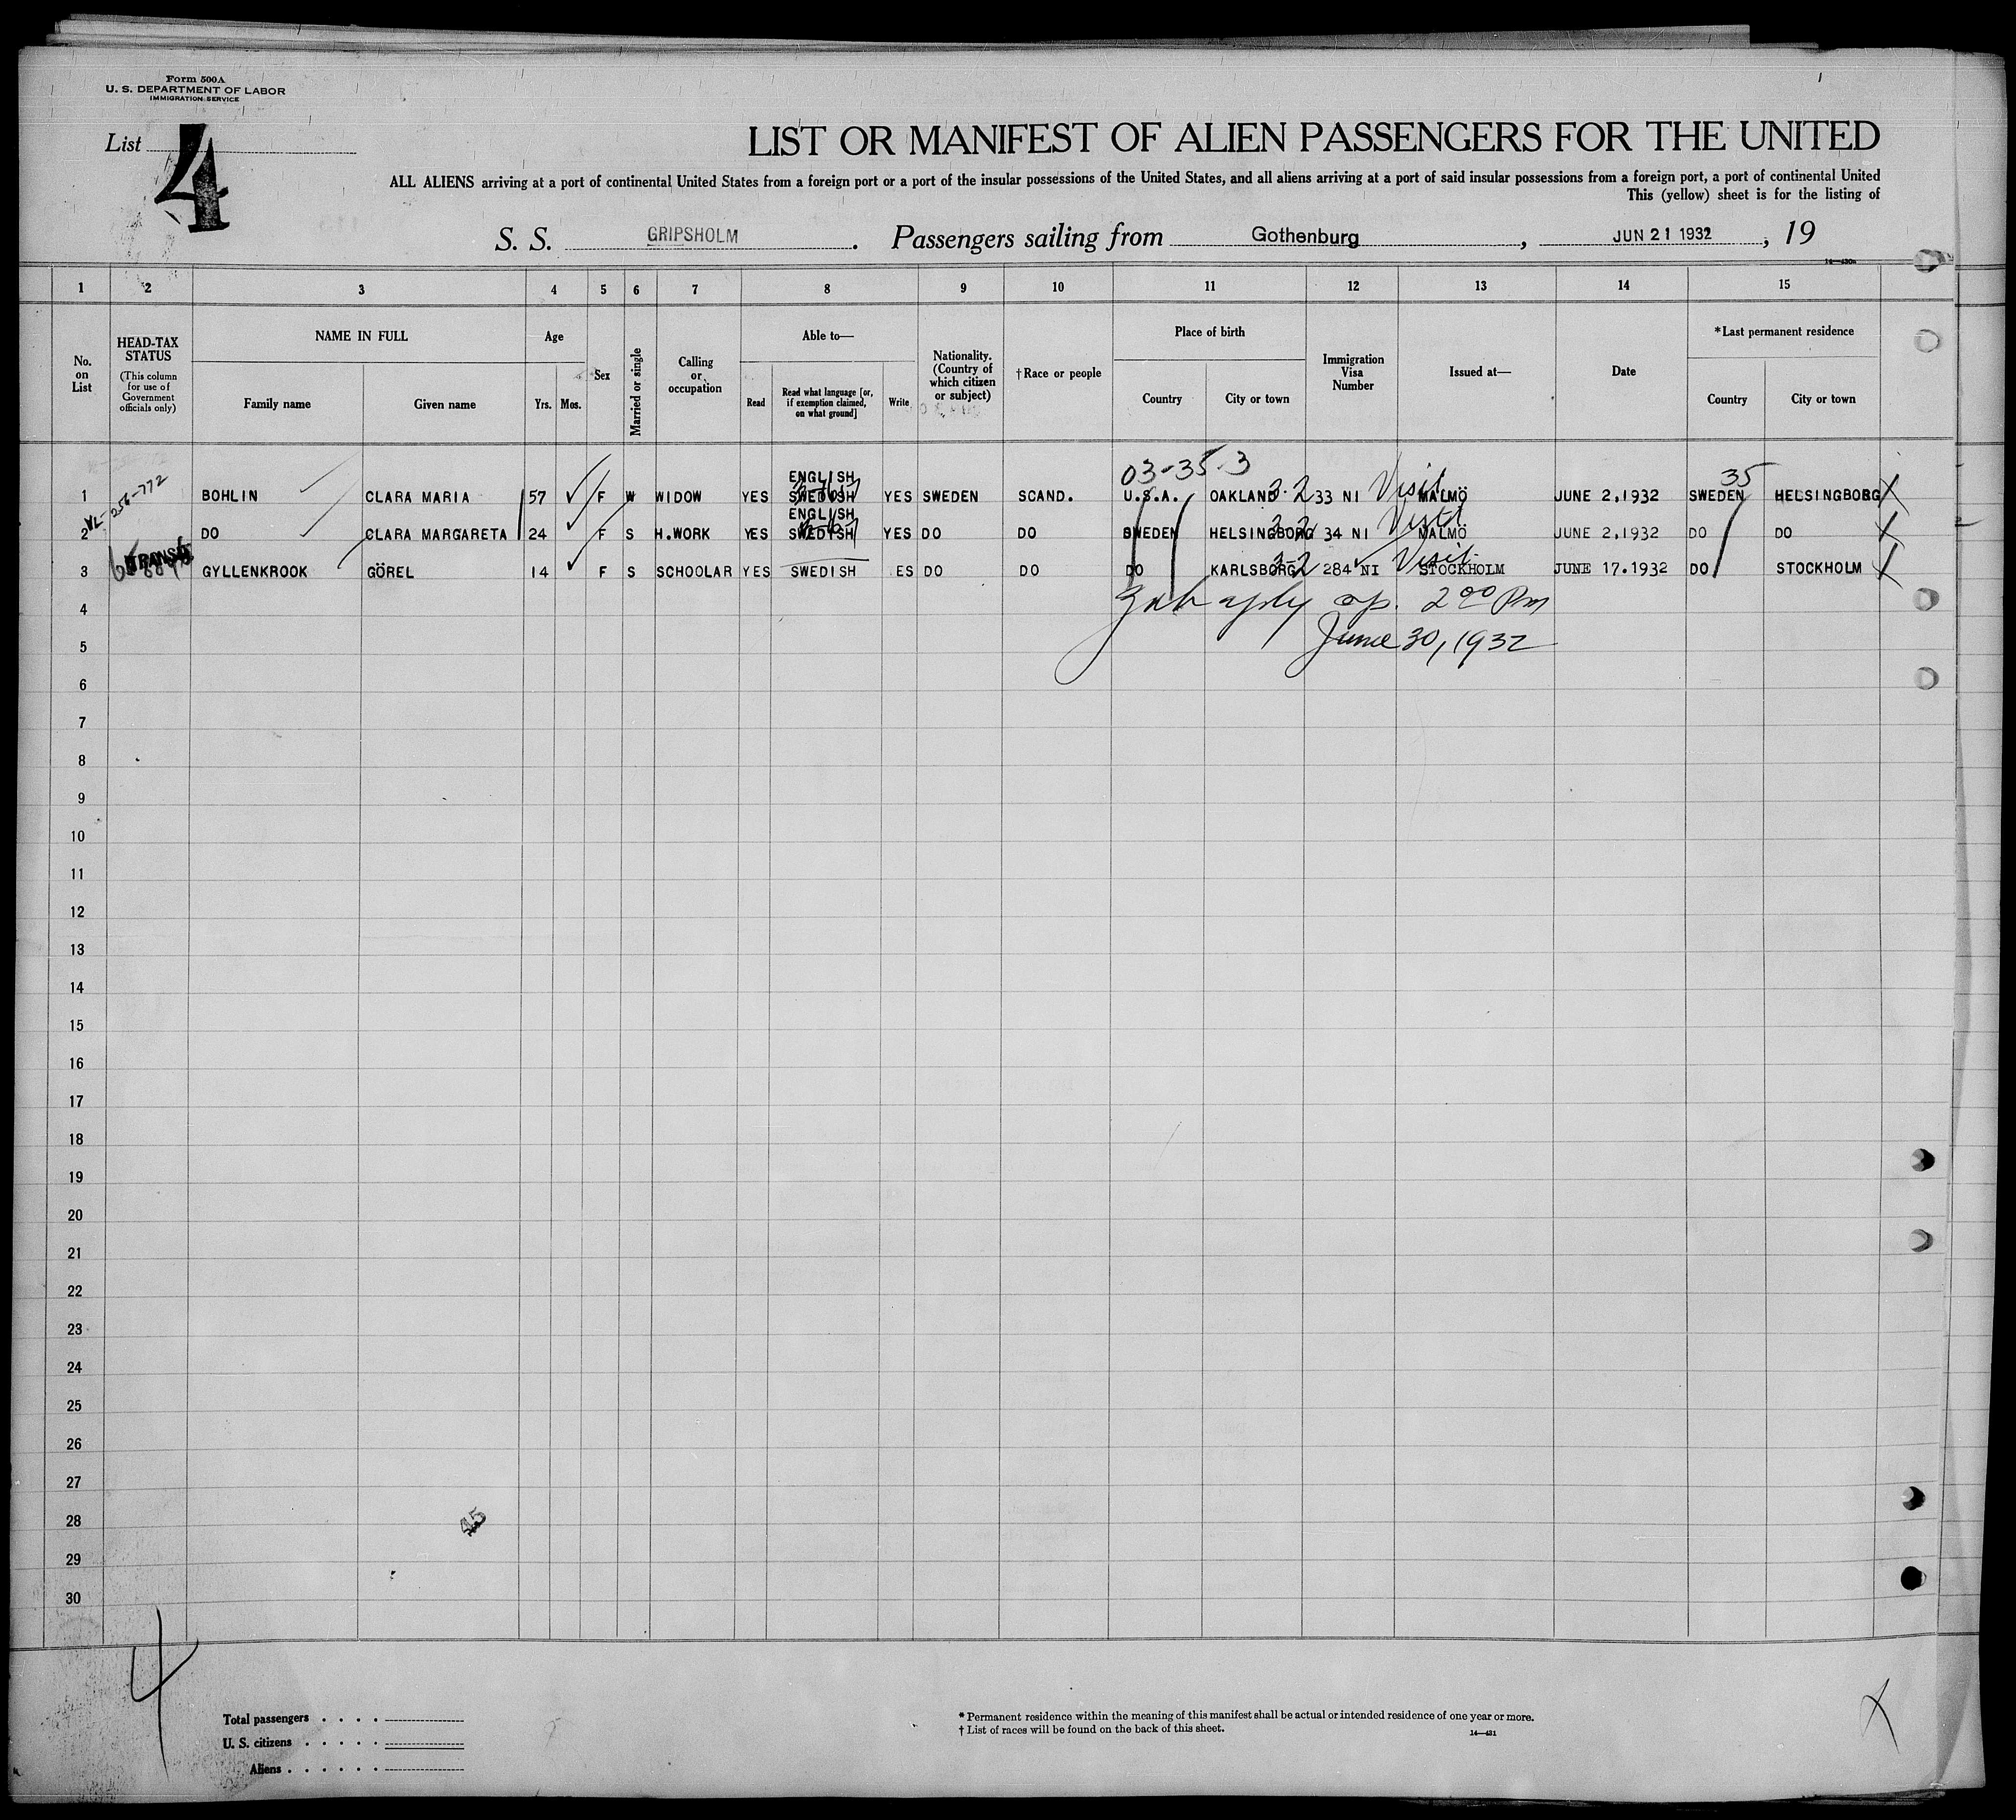 Form 500A
U. S. DEPARTMENT OF LABOR
IMMIGRATION SERVICE
List 4
LIST OR MANIFEST OF ALIEN PASSENGERS FOR THE UNITED
ALL ALIENS arriving at a port of continental United States from a foreign port or a port of the insular possessions of the United States, and all aliens arriving at a port of said insular possessions from a foreign port, a port of continental United
This (yellow) sheet is for the listing of
S. S. GRIPSHOLM. Passengers sailing from Gothenburg, JUN 21 1932, 19
1 2 3 4 5 6 7 8 9 10 11 12 13 14 15
No. on List
HEAD-TAX STATUS (This column for use of Government officials only)
NAME IN FULL Family name Given name
Age Yrs. Mos.
Sex
Married or single
Calling or occupation
Able to— Read Read what language [or, if exemption claimed, on what ground] Write
Nationality. (Country of which citizen or subject)
†Race or people
Place of birth Country City or town
Immigration Visa Number
Issued at—
Date
*Last permanent residence Country City or town
03-35-3 35
ENGLISH
1 256-772 BOHLIN CLARA MARIA 57 F W WIDOW YES SWEDISH YES SWEDEN SCAND. U.S.A. OAKLAND 3-2 33 NI Visit MALMÖ JUNE 2,1932 SWEDEN HELSINGBORG X
ENGLISH
2 DO CLARA MARGARETA 24 F S H.WORK YES SWEDISH YES DO DO SWEDEN HELSINGBORG 34 NI Visit MALMÖ JUNE 2,1932 DO DO X
3 TRANSIT GYLLENKROOK GÖREL 14 F S SCHOOLAR YES SWEDISH ES DO DO DO KARLSBORG 3-2 284 NI Visit STOCKHOLM JUNE 17.1932 DO STOCKHOLM X
4 2 00 Pm
5 June 30, 1932
6
7
8
9
10
11
12
13
14
15
16
17
18
19
20
21
22
23
24
25
26
27
28 45
29
30
4
X
Total passengers . . . .
U. S. citizens . . . . .
Aliens . . . . . .
* Permanent residence within the meaning of this manifest shall be actual or intended residence of one year or more.
† List of races will be found on the back of this sheet. 14—431